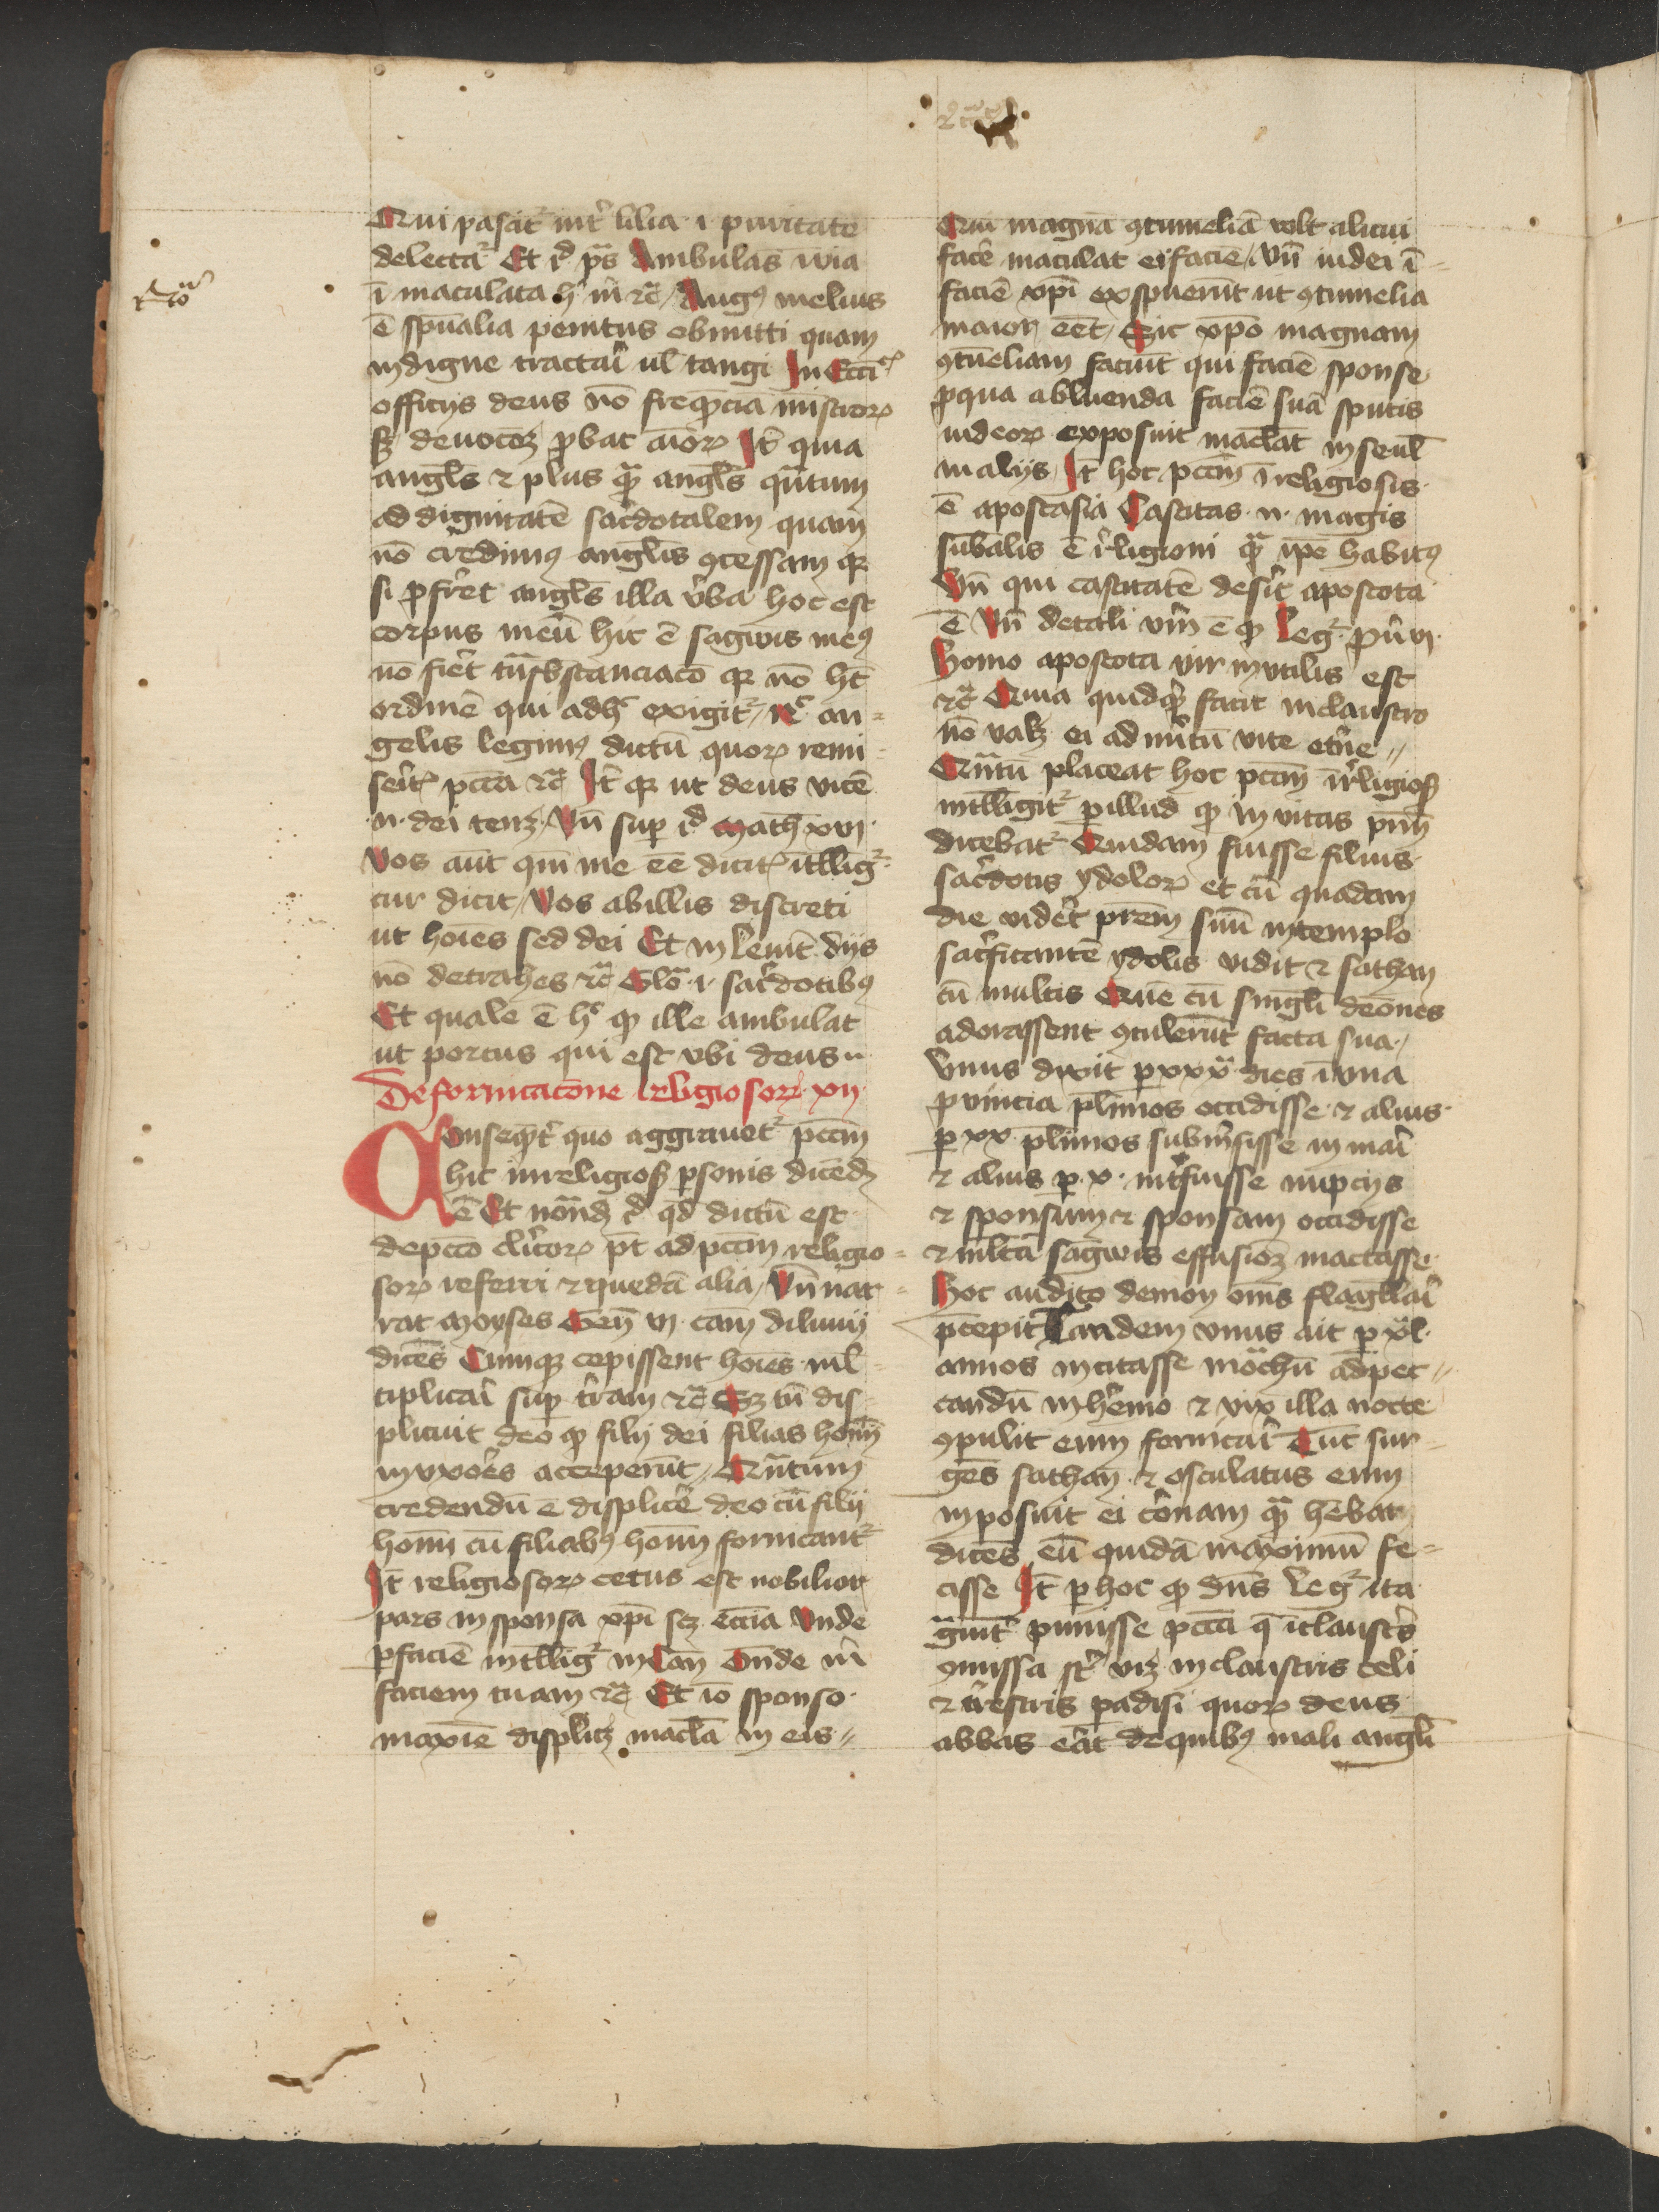 Qui pascit᷑ int̾ lilia ·i· puritate
delectat᷑ Et id̾ ps̄ Ambulās ī via
ī maculata h̾ m̄ ⁊c̄ Augꝰ melius
ē sp̄ualia penitus obmitti quam
indigne tractari ul̄ tangi In Eccī
officijs deus nō freq̄ncia mīstroꝝ
sꝫ deuocōeꝫ ꝓbat aīoꝝ It̄ quia
angl̄s ⁊ plus qᷓ angl̄s qᷓntum
ad dignitatē sac̾dotalem quam
nō c̾dimꝰ angl̄is ꝯcessam qꝛ
si ꝓfer̾et angl̄s illa v̾ba hoc est
corpus meū hic ē sagwis meꝰ
nō fier̾t tᷓnsb̄stanciacō qꝛ nō hꝫ
ordinē qui adh̾ exigit᷑ nec̾ an=
gelis legimꝰ dictū quoꝝ remi=
ser̾itꝭ pccā ⁊c̄ It̄ qꝛ ut deus vicē
·n· dei tenꝫ Vn̄ sup id̾ Math xvi
Vos aūt quē me eē dicitꝭ ītllig᷑
cur dicit Vos ab illis discreti
ut hoīes sed dei Et in leuit̄ dijs
nō detrahes ⁊c̄ Glō ·i· sac̾dotibꝰ
Et quale ē h̾ ꝙ ille ambulat
ut porcus qui est vbi deus
De fornicacōne religiosoꝝ xij
Consequēt̾ quo aggrauet᷑ pccm̄
hic in religios̾ ꝑsonis dicēdꝫ
ē Et nōndꝫ id̾ qd̄ dictū est
de pccō cl̾icoꝝ pt̄ ad pccm̄ religio=
soꝝ referri ⁊ quedā alia Vn̄ nar=
rat Moyses Gen̄ vi cām diluuij
dicēs Cumqꝫ cepissent hoīes ml̄=
tiplicari sup t̾ram ⁊c̄ Sꝫ tn̄ dis=
plicuit deo ꝙ filij dei filias homī
in vxor̾es acceperūt Qᷓntum
credendū ē displice̾ deo cū filij
homī cū filiabꝰ homī fornicant᷑
It̄ religiosoꝝ cetus est nobilior
pars in sponsa xp̄i scꝫ ecc̄ia Vnde
ꝑ faciē intllig᷑ in Can̄ Ōnde m̄
faciem tuam ⁊c̄ Et iō sponso
maxīe displicꝫ macl̄a in eis
Qui magnā ꝯtumeliā volt alicui
facer̾ maculat ei faciē Vn̄ iudei ī=
faciē xp̄i exspuerūt ut ꝯtumelia
maior eet̄ Sic xp̄o magnam
ꝯtūeliam faciūt qui faciē sponse
ꝓ qua abluenda faciē suā sputis
iudeoꝝ exposuit macl̄āt in secul̄
malijs It̄ hoc pccm̄ ī religiosis
ē apostasia Castitas ·n· magis
sūbalis ē r̾ligioni qᷓ ip̄e habitꝰ
Vn̄ qui castitatē deser̾t apostota
ē Vn̄ de tali vm̄ ē ꝙ leg᷑ ꝓu̾ vi
Homo apostota vir inutilis est
⁊c̄ Quia quidq̾ facit in claustro
nō valꝫ ei ad m̾itū vite et̾ne
Qᷓntū placeat hoc pccm̄ ī r̾ligios̾
intlligit᷑ ꝑ illud ꝙ in vitas pr̄m
dicebat᷑ Quidam fuisse filius
sac̾dotis ydoloꝝ et cū quadam
die vider̾t pr̄em suū in templo
sac̾ficantē ydolis vidit ⁊ sathan
cū multis Quē cū singl̄i demōes
adorassent ꝯtulerūt facta sua
Vnus dixit ꝑ xxxᵃ dies ī vna
ꝓuincia pl̄imos occidisse ⁊ alius
ꝑ xx pl̄imos subm̾sisse in mari
⁊ alius ꝑ x int̾fuisse nupcijs
⁊ sponsum ⁊ sponsam occidisse
⁊ ml̄tā sagwis effusioꝫ mactasse
Hoc audito demon om̄s flagll̄ari
p̄cepit Tandem vnus ait ꝑ xl
annos incitasse mo᷑chū ad pec=
candū in h̾emo ⁊ vix illa nocte
ꝯpulit eum fornicari Tūc sur=
gēs sathan ⁊ osculatus eum
inposuit ei coronam qᷓ hēbat
dicēs eū quidā maximū fe=
cisse It̄ ꝑ hoc ꝙ dn̄s leg᷑ ita
gᷓuit̾ puniisse pccā q̄ ī claustro
ꝯmissa st̄ viꝫ in claustris celi
⁊ t̾restris ꝑadisi quoꝝ deus
abbas er̾at de quibꝰ mali angl̄i